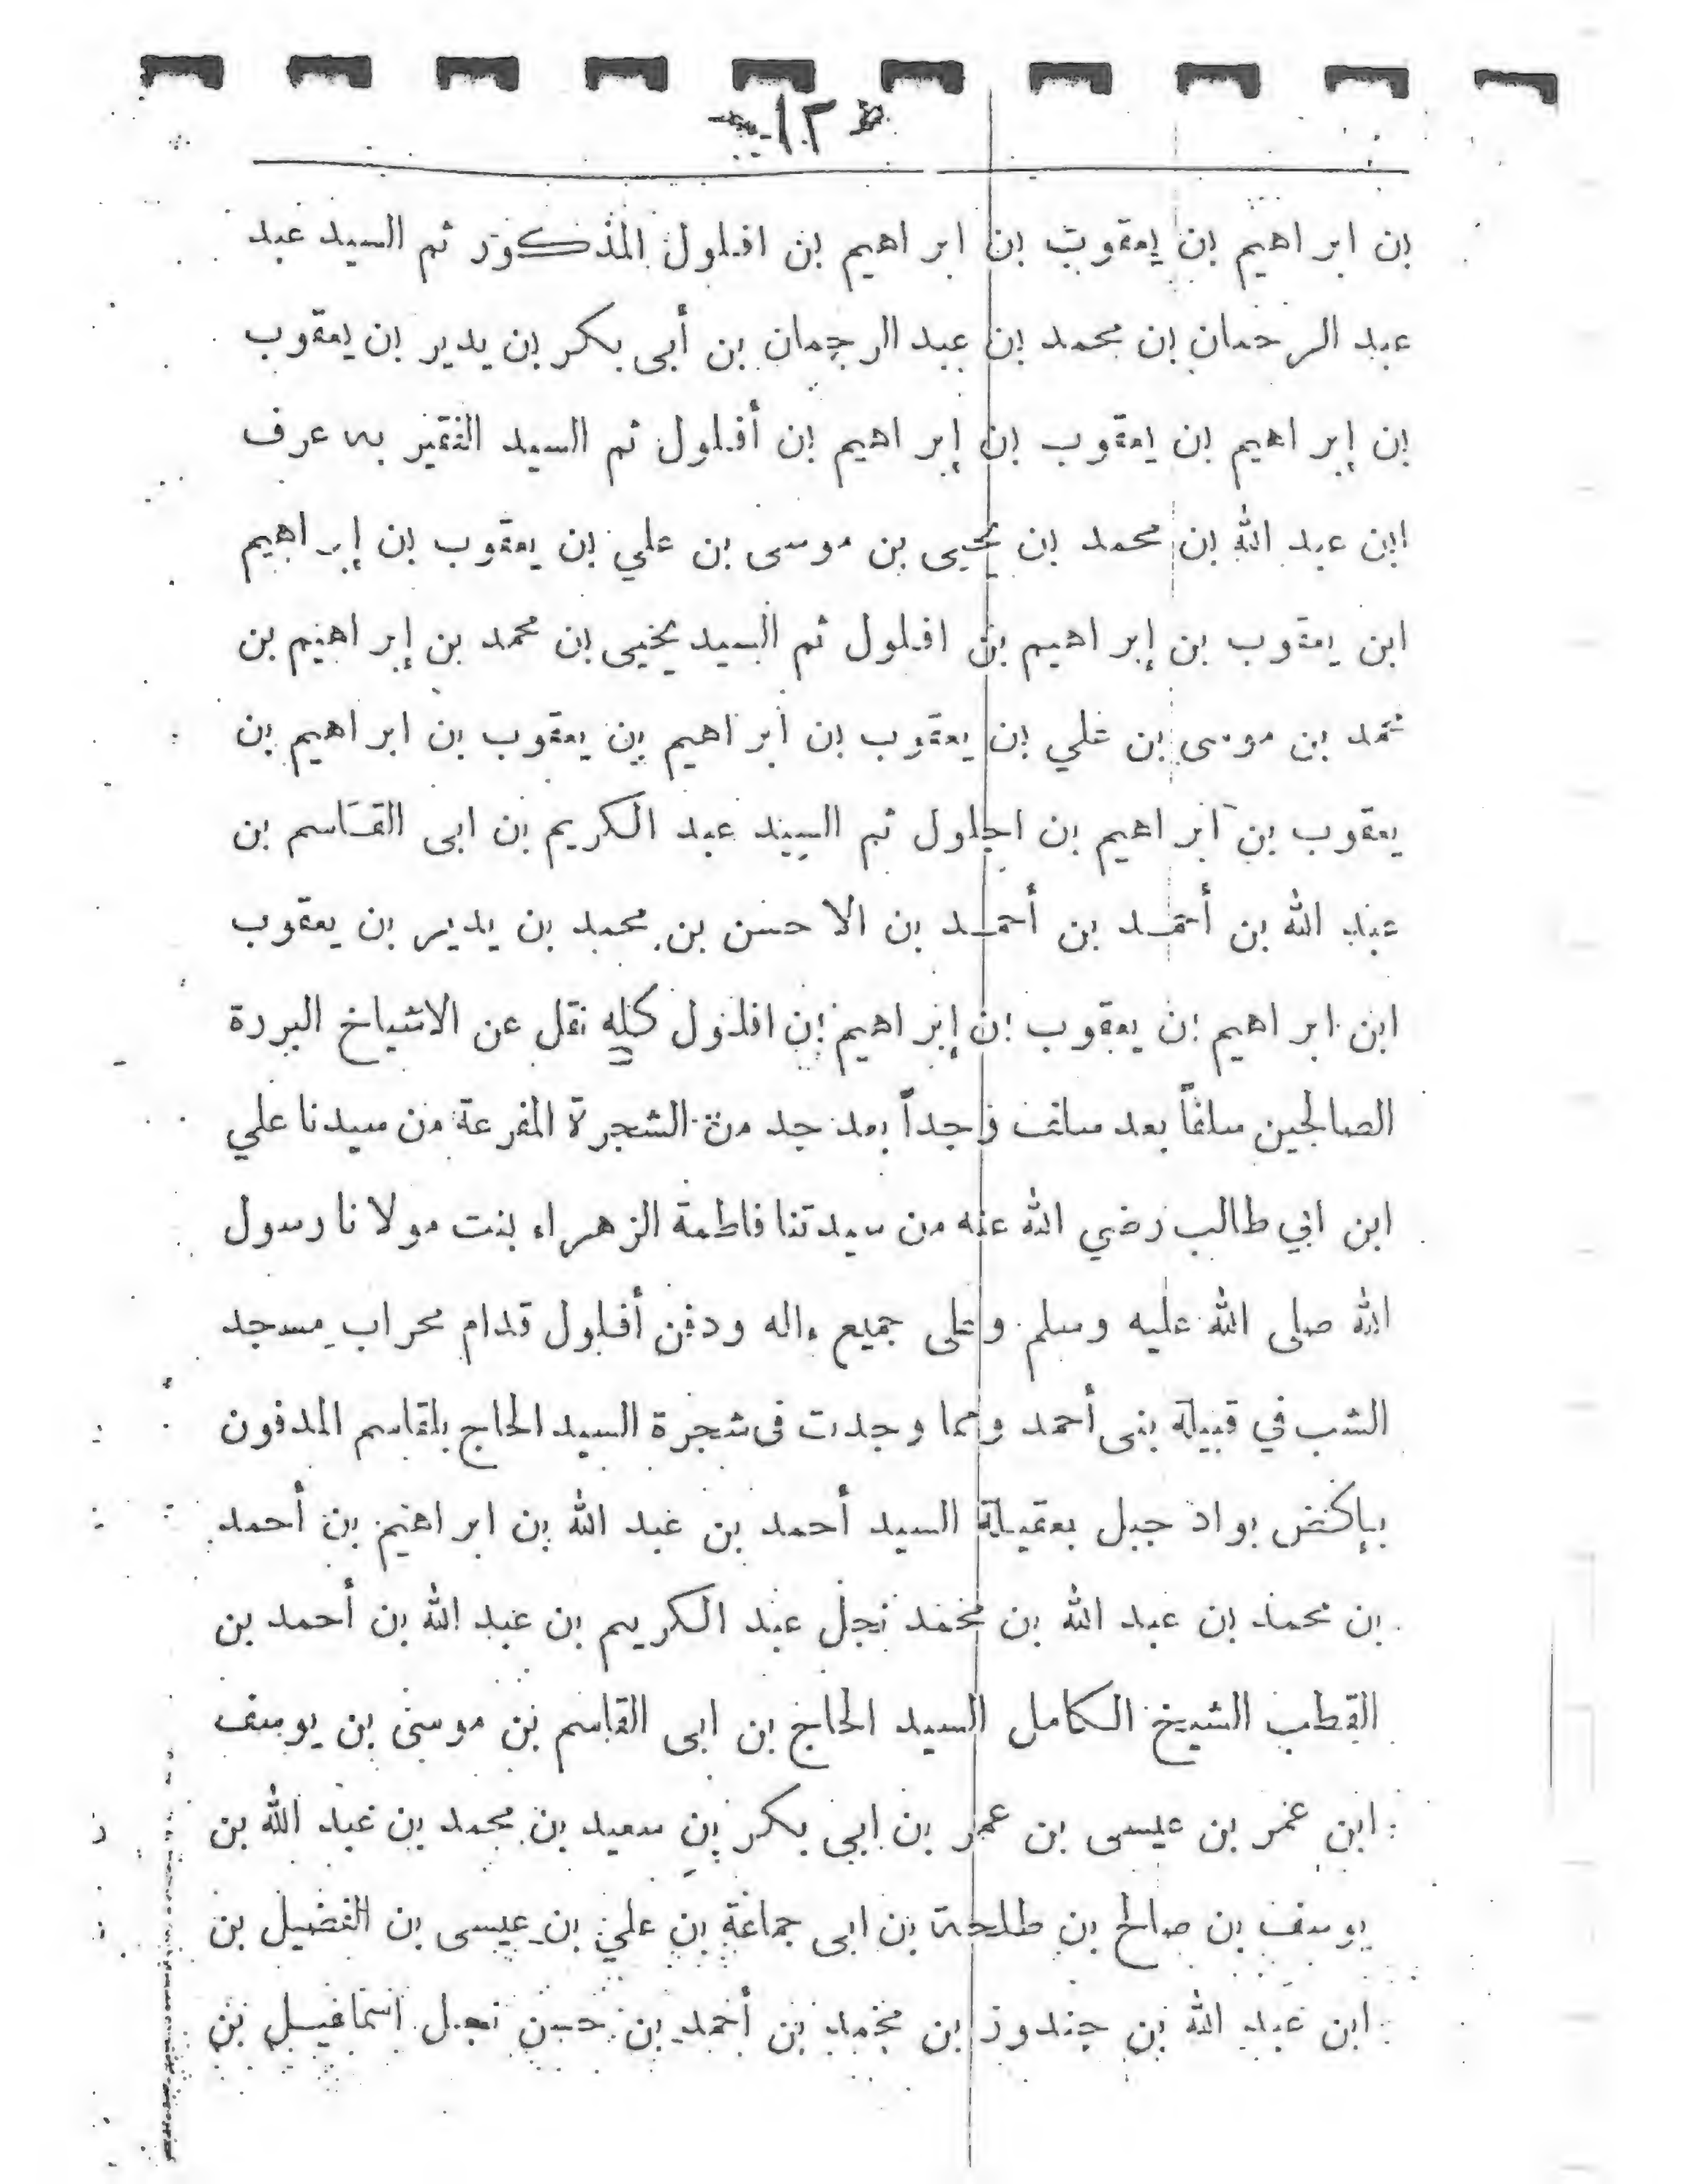 ١٢
بن ابراهيم بن يعقوب بن ابراهيم بن افلول المذكور ثم السيد عبد
عبد الرحمان بن محمد بن عبد الرحمان بن أبى بكر بن يدير بن يعقوب
بن إبراهيم بن يعقوب بن إبراهيم بن أفلول ثم السيد الفقير به عرف
ابن عبد الله بن محمد بن يحيى بن موسى بن علي بن يعقوب بن إبراهيم
ابن يعقوب بن إبراهيم بن افلول ثم السيد يحيى بن محمد بن إبراهيم بن
محمد بن موسى بن علي بن يعقوب بن ابراهيم بن يعقوب بن ابراهيم بن
يعقوب بن ابراهيم بن اجلول ثم السيد عبد الكريم بن ابى القاسم بن
عبد الله بن أحمد بن أحمد بن الاحسن بن محمد بن يدير بن يعقوب
ابن ابراهيم بن يعقوب بن إبراهيم بن افلول كله نقل عن الاشياخ البررة
الصالحين سلفاً بعد سلف وجداً بعد جد من الشجرة المفرعة من سيدنا علي
ابن ابي طالب رضي الله عنه من سيدتنا فاطمة الزهراء بنت مولانا رسول
الله صلى الله عليه وسلم وعلى جميع ءاله ودفن أفلول قدام محراب مسجد
الشب في قبيلة بنى أحمد ومما وجدت فى شجرة السيد الحاج بلقاسم المدفون
بإكفض بواد جبل بعقيلة السيد أحمد بن عبد الله بن ابراهيم بن أحمد
بن محمد بن عبد الله بن محمد نجل عبد الكريم بن عبد الله بن أحمد بن
القطب الشيخ الكامل السيد الحاج بن ابى القاسم بن موسى بن يوسف
ابن عمر بن عيسى بن عمر بن ابى بكر بن سعيد بن محمد بن عبد الله بن
يوسف بن صالح بن طلحة بن ابى جماعة بن علي بن عيسى بن الفضيل بن
ابن عبد الله بن جندوز بن محمد بن أحمد بن حسن نجل اسماعيل بن